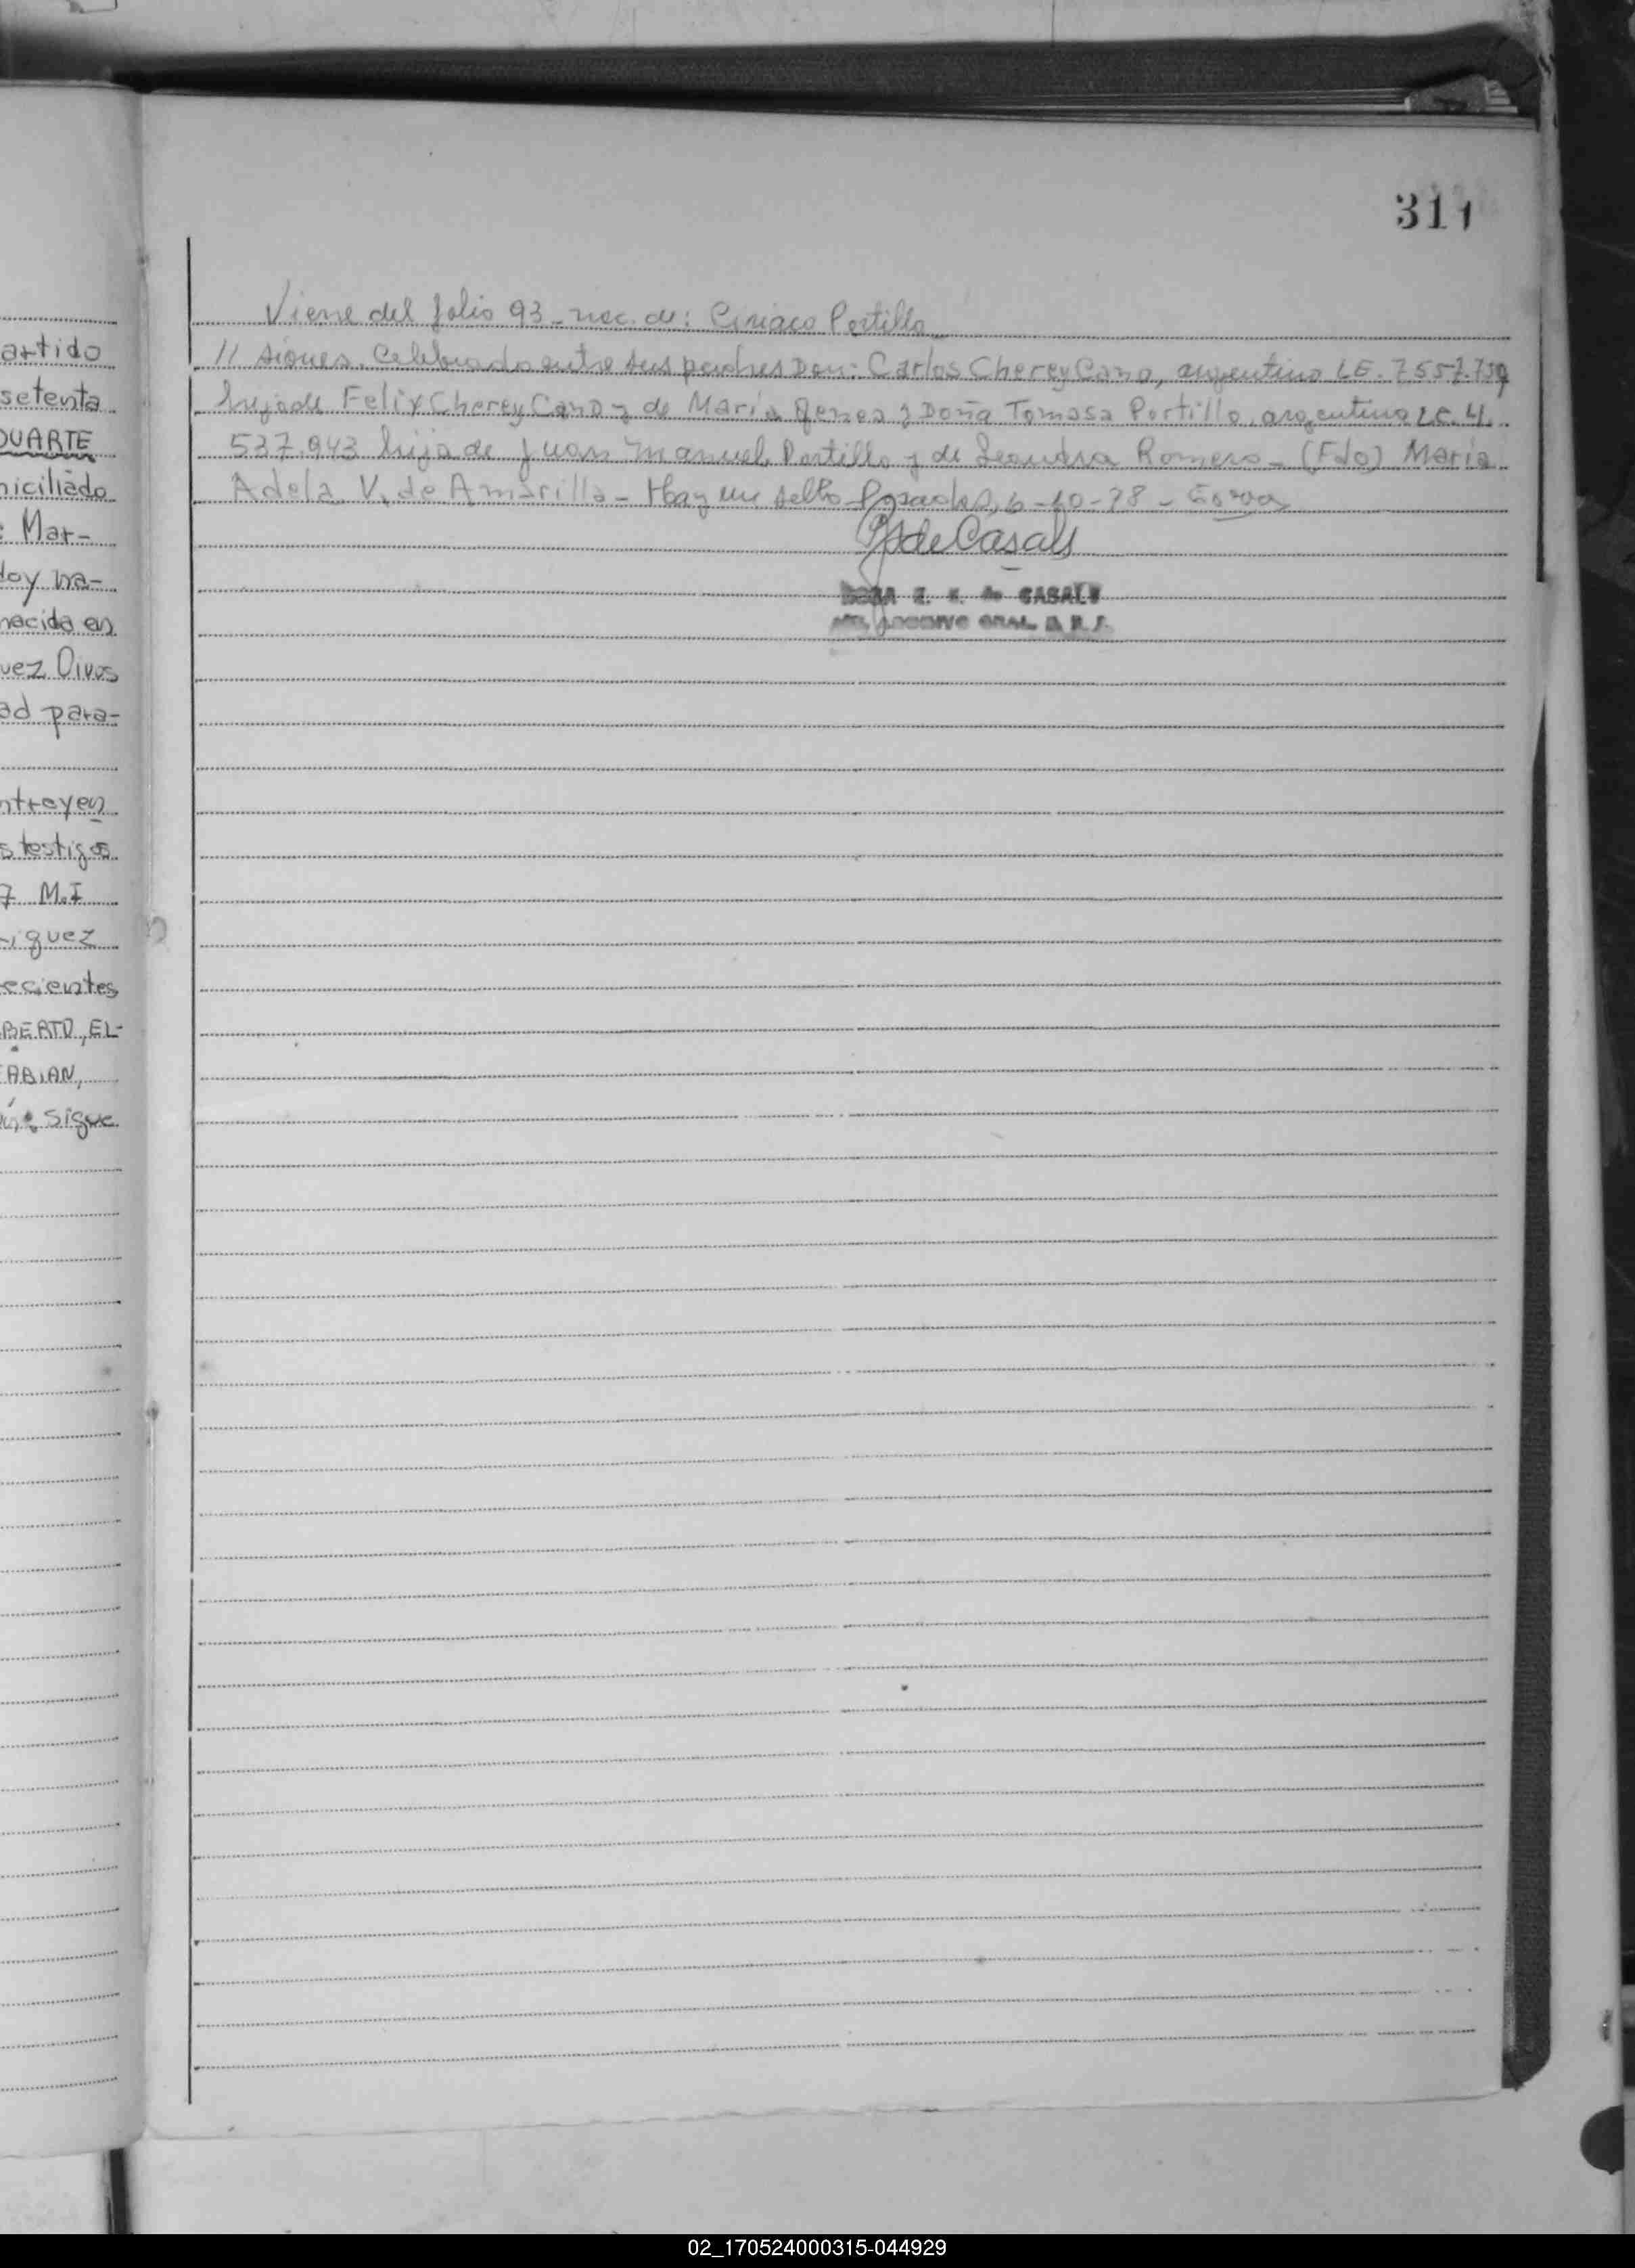 311
Viene del folio 93 - nac. de: Ciriaco Portillo
// siones. Celebrado entre sus padres Don: Carlos Cherey Cano, argentino L.E. 7.557.759
hijo de Felix Cherey Cano y de María y Doña Tomasa Portillo, argentina L.C. 4.
537.943 hija de Juan Manuel Portillo y de Leandra Romero - (Fdo) María
Adela V. de Amarilla - Hay un sello Posadas, 6-10-78 -
de Casals
de CASALS
ARCHIVO GRAL.
artido
setenta
DUARTE
niciliado
: Mar-
doy na-
nacida en
uez Olivos
ad para-
ntreyen
s testigos
7 M.I
riguez
ecientes
BERTO, EL-
FABIAN,
sigue
02_170524000315-044929